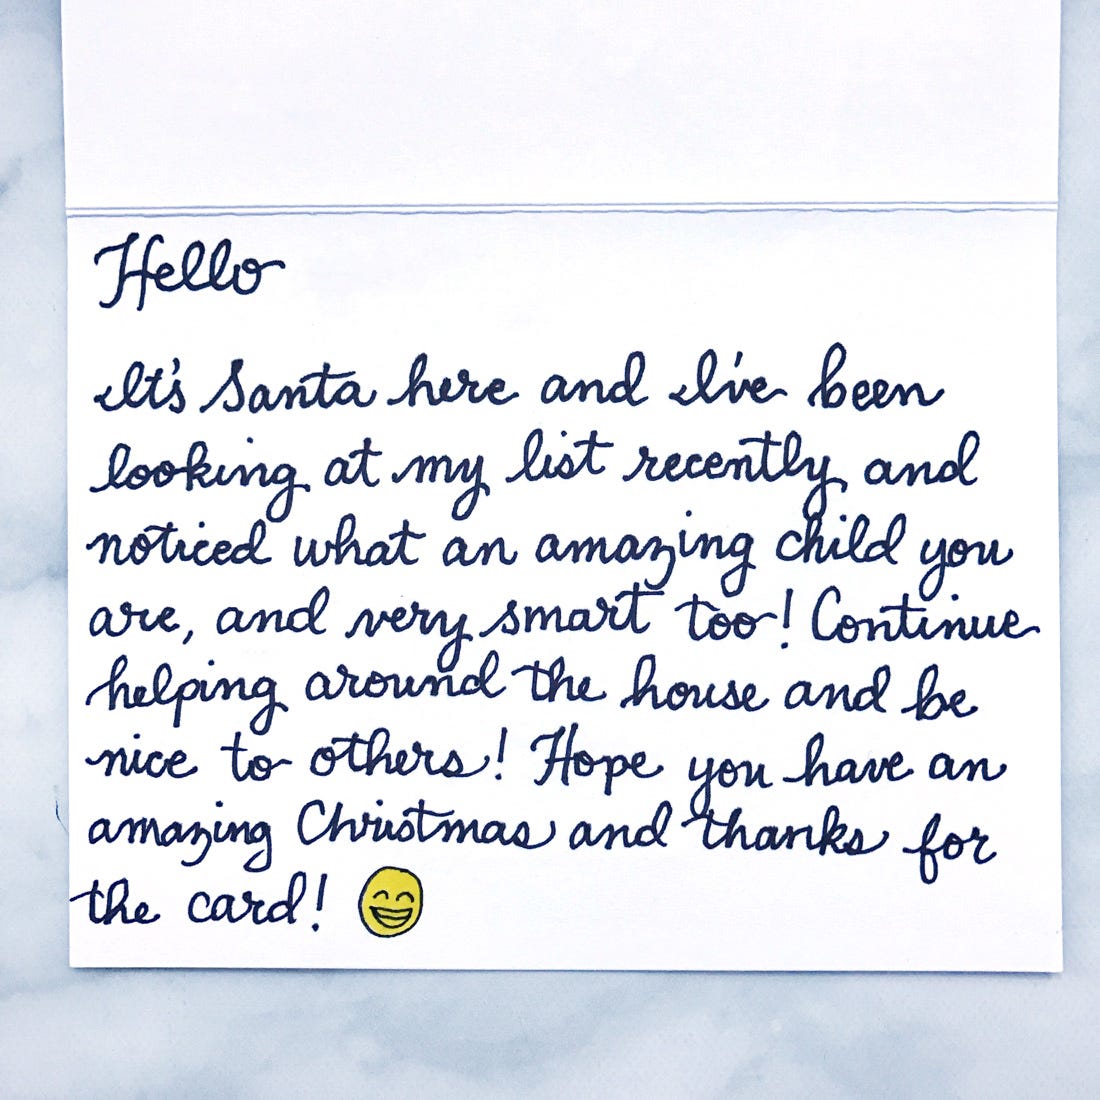 Hello
It's Santa here and I've been
looking at my list recently and
noticed what an amazing child you
are, and very smart too! Continue
helping around the house and be
nice to others! Hope you have an
amazing Christmas and thanks for
the card! 😄